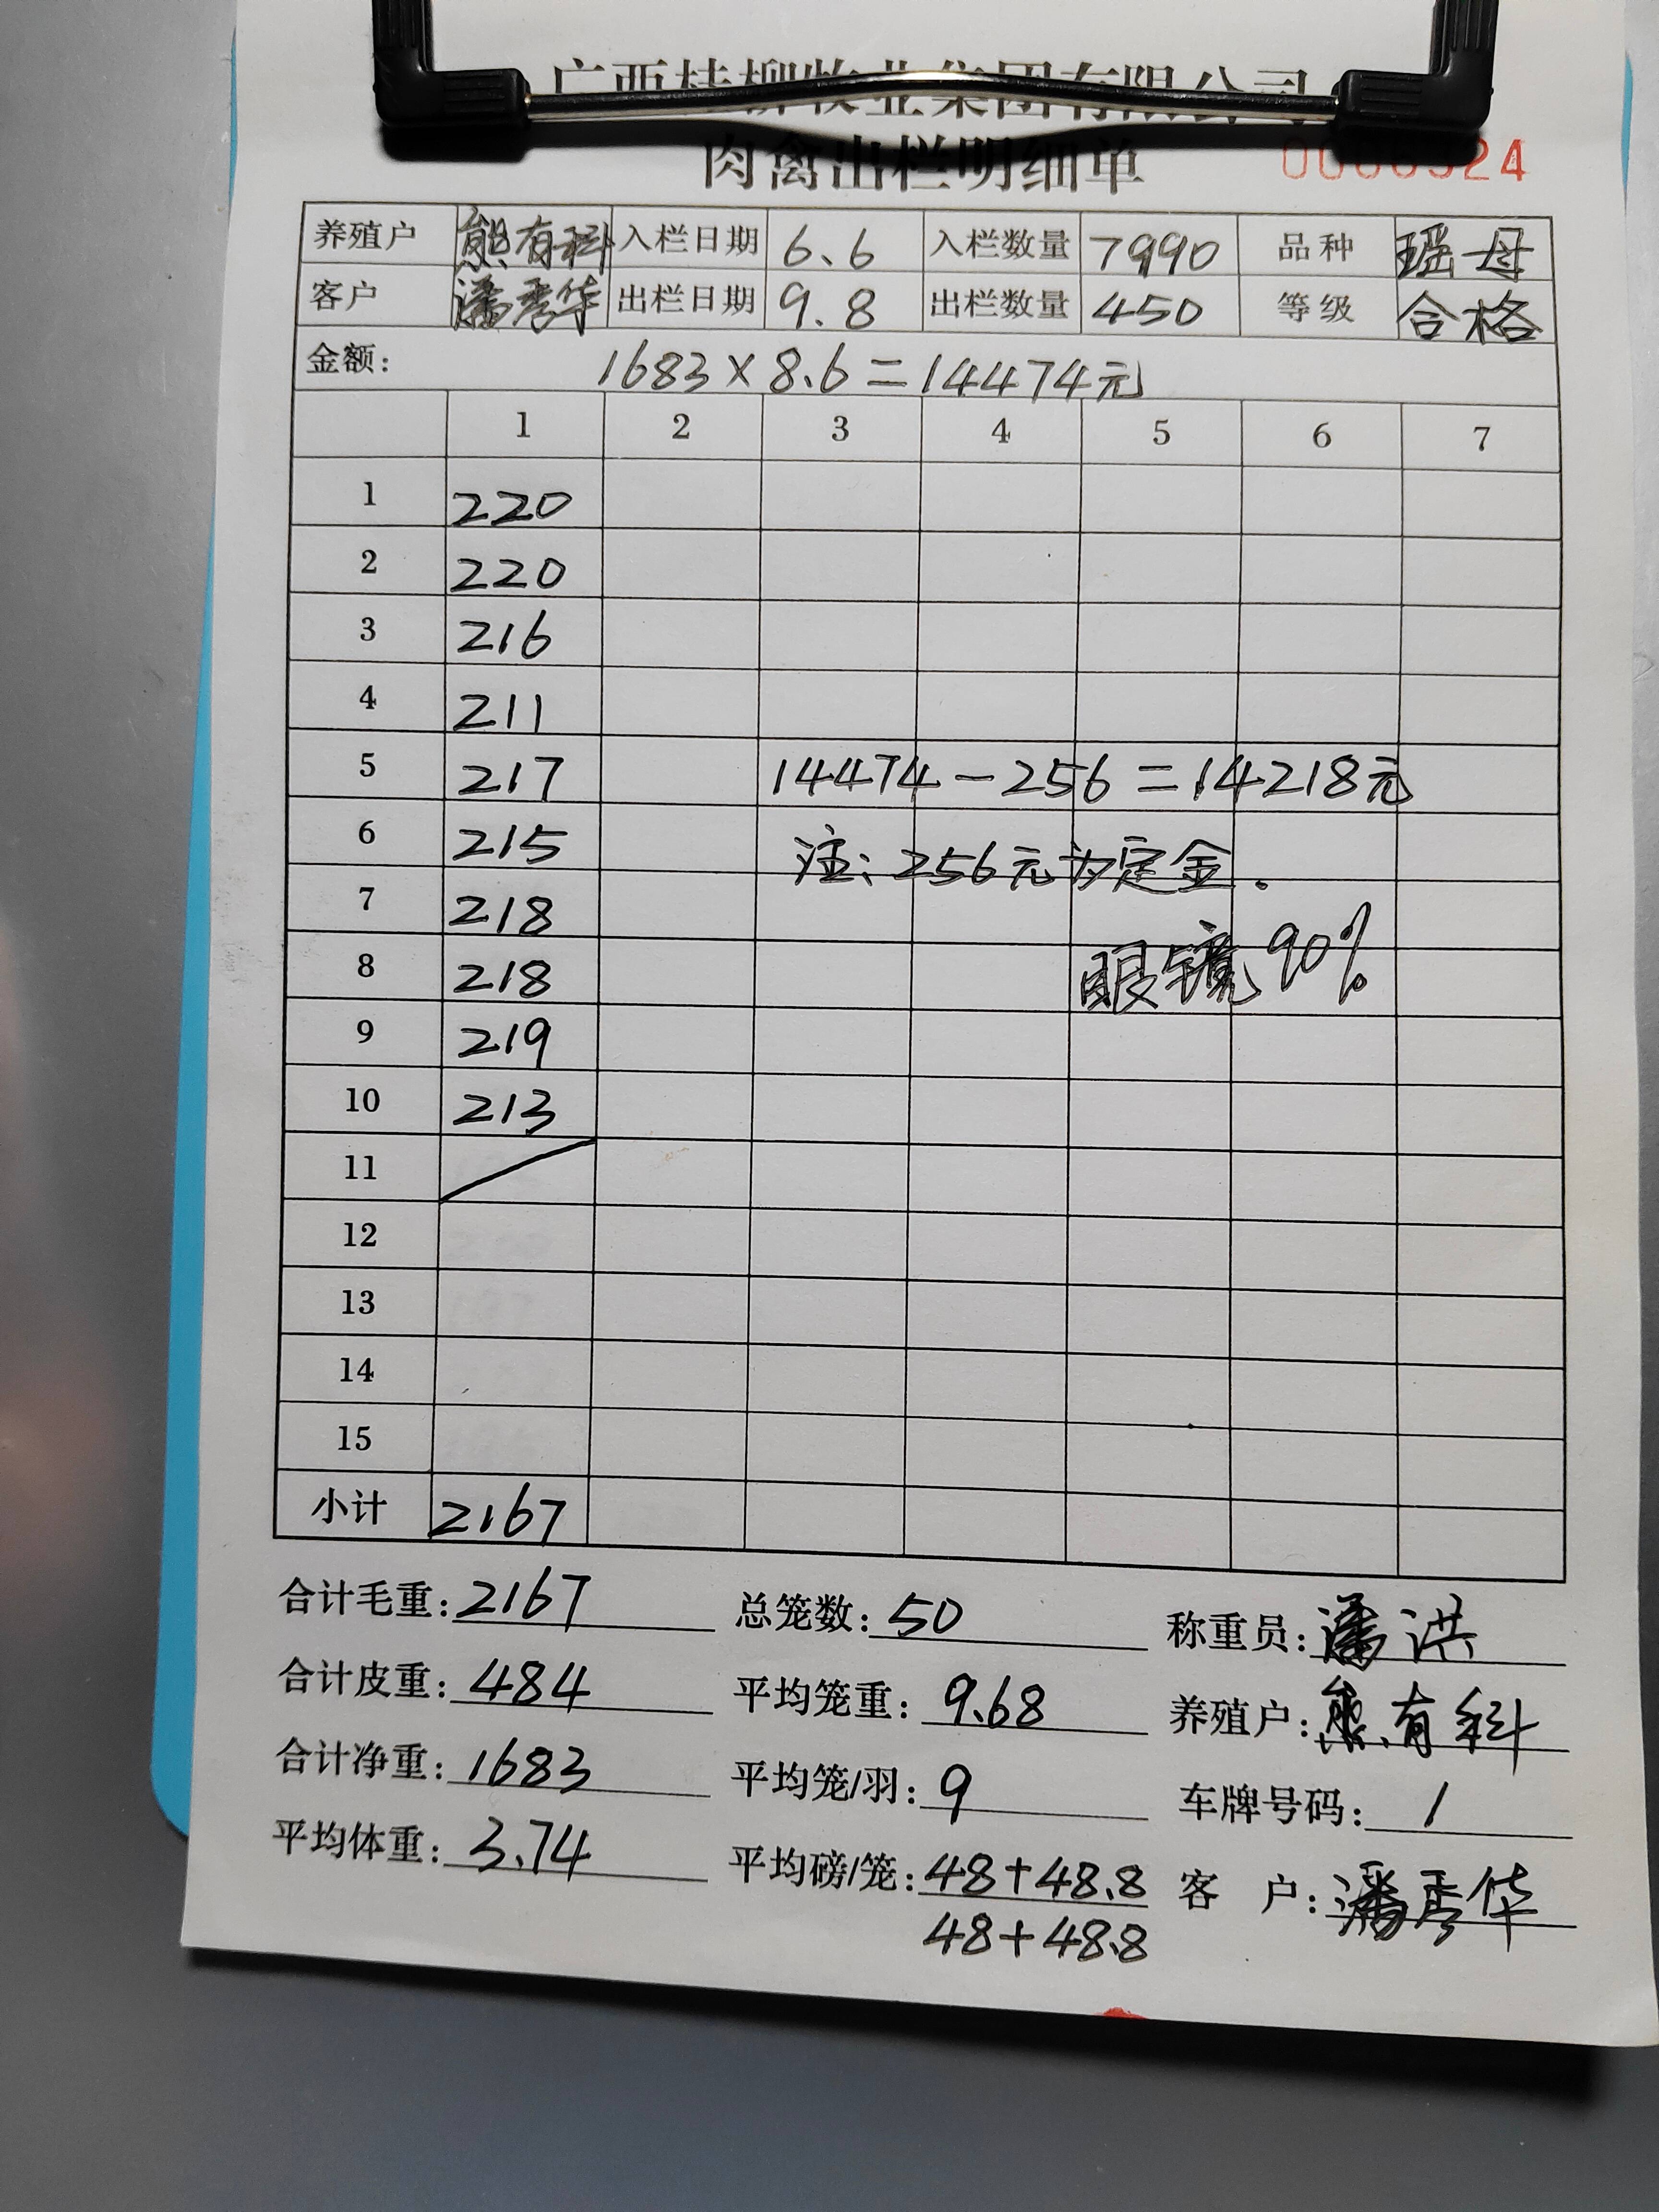 广西桂柳牧业集团有限公司
肉禽出栏明细单
养殖户 熊有科 入栏日期 6.6 入栏数量 7990 品种 瑶母
客户 潘秀华 出栏日期 9.8 出栏数量 450 等级 合格
金额: 1683×8.6=14474元
1 2 3 4 5 6 7
1 220
2 220
3 216
4 211
5 217 14474-256=14218元
6 215 注:256元为定金.
7 218
8 218 眼镜90%
9 219
10 213
11
12
13
14
15
小计 2167
合计毛重:2167 总笼数:50 称重员:潘洪
合计皮重:484 平均笼重:9.68 养殖户:熊有科
合计净重:1683 平均笼/羽:9 车牌号码:1
平均体重:3.74 平均磅/笼:48+48.8 客 户:潘秀华
48+48.8